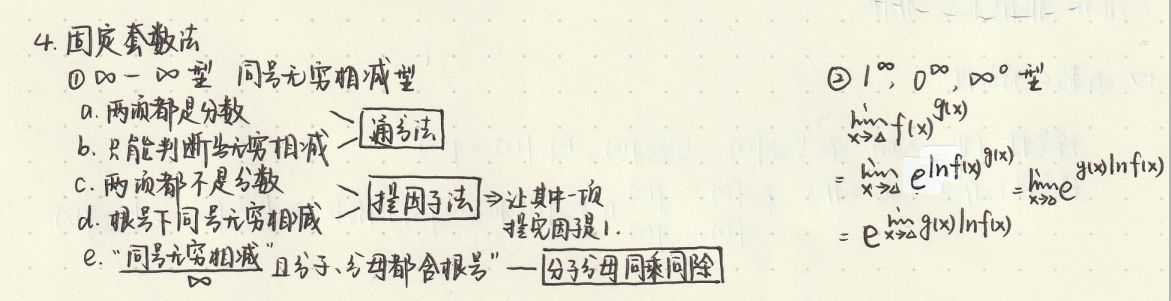 4. 固定套数法
① ∞ - ∞ 型 同号无穷相减型
a. 两项都是分数
b. 只能判断出无穷相减
通分法
c. 两项都不是分数
d. 根号下同号无穷相减
提因子法 ⇒ 让其中一项
提完因子提1.
e. “同号无穷相减/∞ 且分子、分母都含根号” — 分子分母同乘同除
② 1^∞, 0^∞, ∞^0 型
lim x→Δ f(x)^g(x)
= lim x→Δ e^ln f(x)^g(x) = lim x→Δ e^g(x) ln f(x)
= e^lim x→Δ g(x) ln f(x)